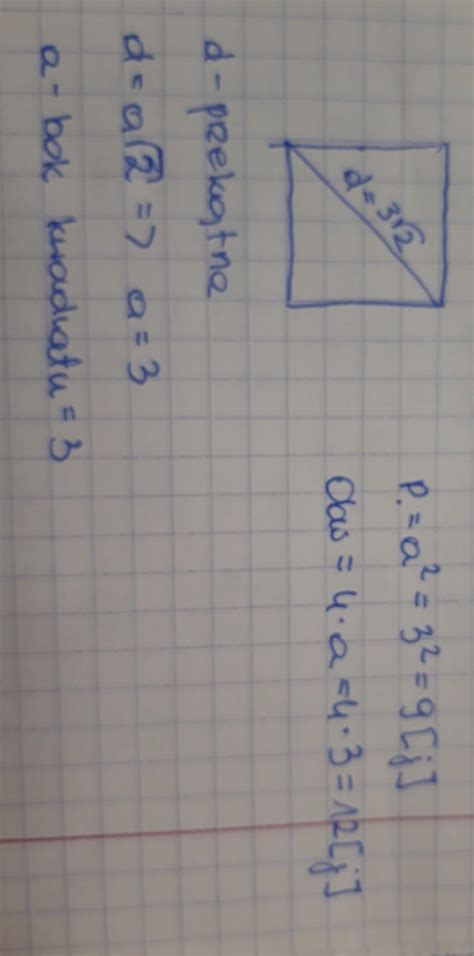 d = 3√2
d - przekątna
d = a√2 => a = 3
a - bok kwadratu = 3
P. = a² = 3² = 9 [j]
Obw = 4 · a = 4 · 3 = 12 [j]